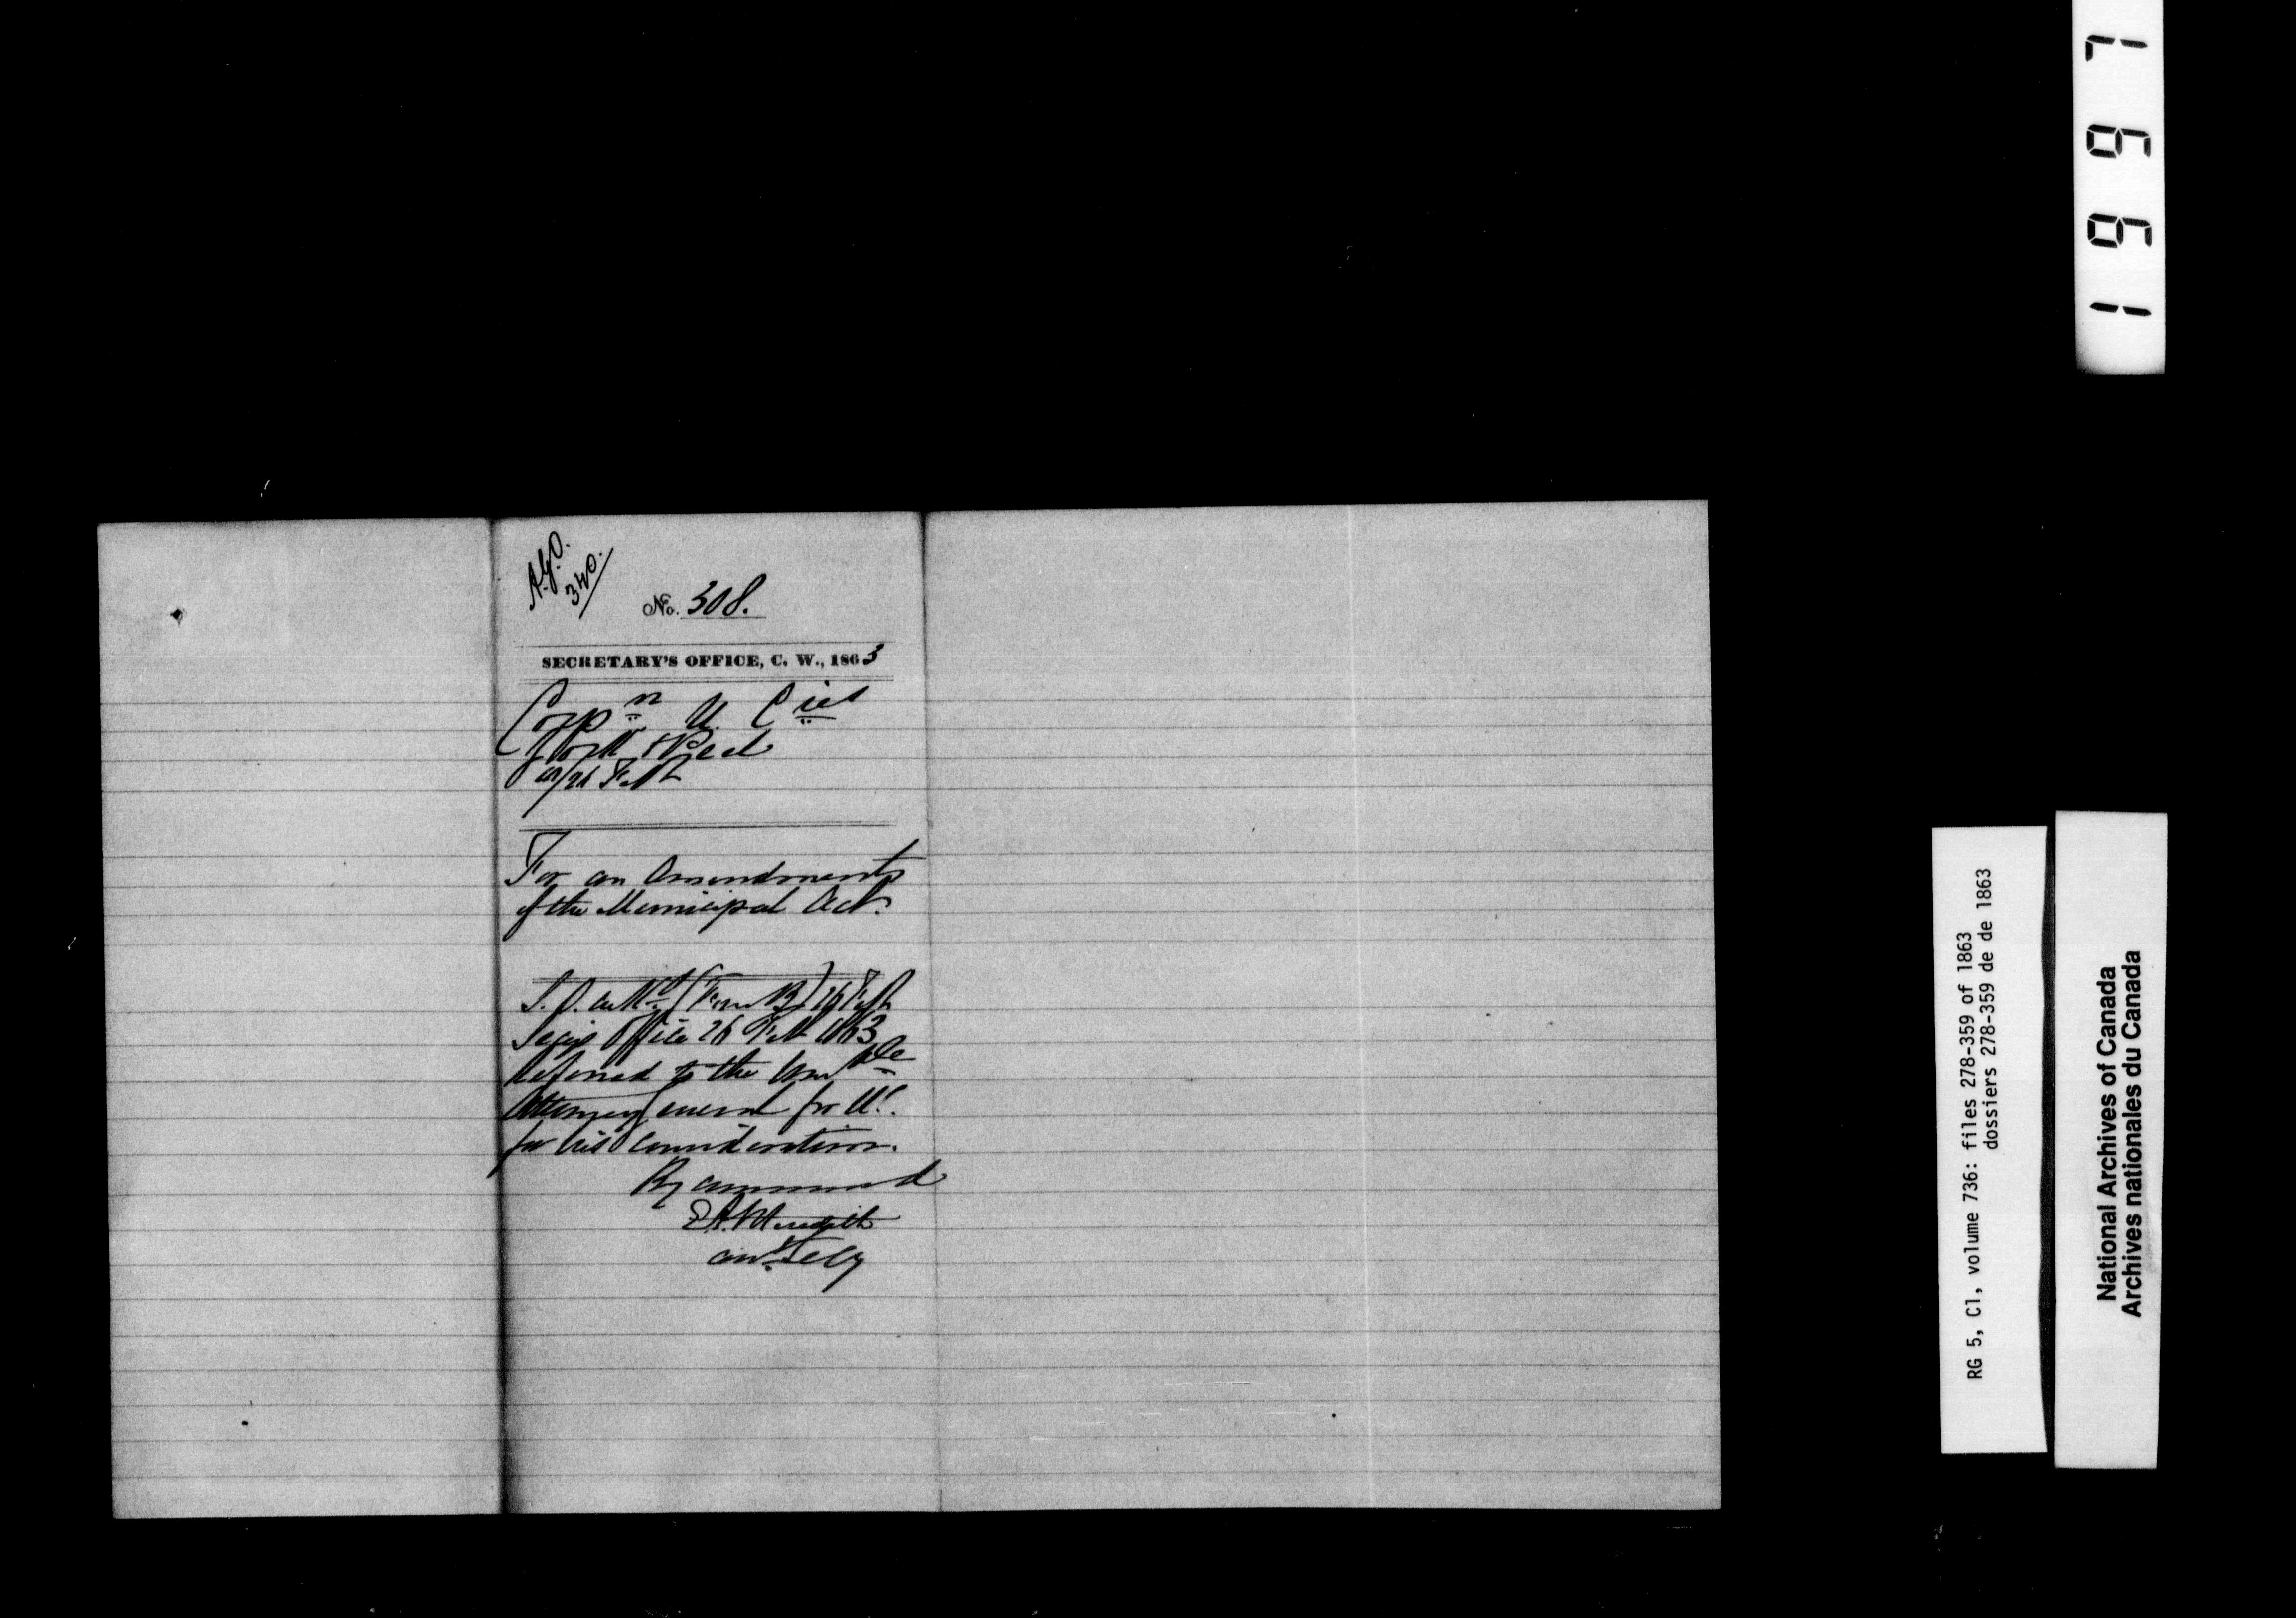 A.G.O.
340.
No. 308.
SECRETARY'S OFFICE, C. W., 1863
Corpn U. Cies
York & Peel
Feby
For an Amendment
of the Municipal Act.
(Form B) 26 Feb
Secys Office 26 Feb 1863
Referred to the Honble
Attorney General for U.C.
for his consideration.
By command
E A Meredith
Asst Secy
1997
RG 5, C1, volume 736: files 278-359 of 1863
dossiers 278-359 de de 1863
National Archives of Canada
Archives nationales du Canada